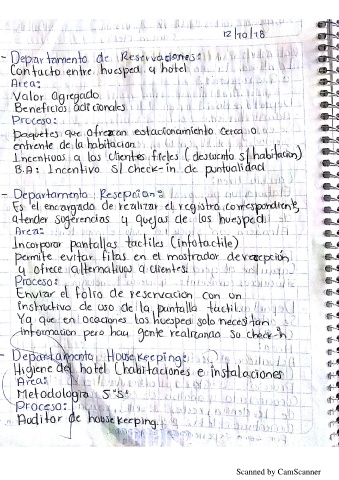 12/10/18
- Departamento de Reservaciones:
Contacto entre huesped y hotel
Area:
Valor Agregado
Beneficios adicionales
Proceso:
paquetes que ofrezcan estacionamiento cerca o
enfrente de la habitacion
Incentivos a los clientes fieles (descuento s/habitacion)
B.A: Incentivo s/ check-in de puntualidad
- Departamento Resepcion:
Es el encargado de realizar el registro correspondiente,
atender sugerencias y quejas de los huesped.
Area:
Incorporar pantallas tactiles (infotactile)
permite evitar filas en el mostrador de recepción
y ofrece alternativas a clientes.
Proceso:
Enviar el folio de reservacion con un
instructivo de uso de la pantalla tactil.
Ya que en ocaciones los huesped solo necesitan
informacion pero hay gente realizando su check-in
- Departamento Housekeeping:
Higiene del hotel (habitaciones e instalaciones
Area:
Metodologia 5"s"
Proceso:
Auditor de housekeeping.
Scanned by CamScanner